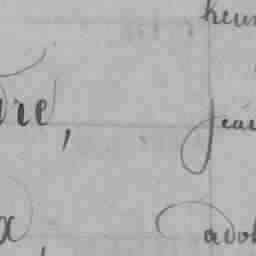 heur
dre, jean
x, adol